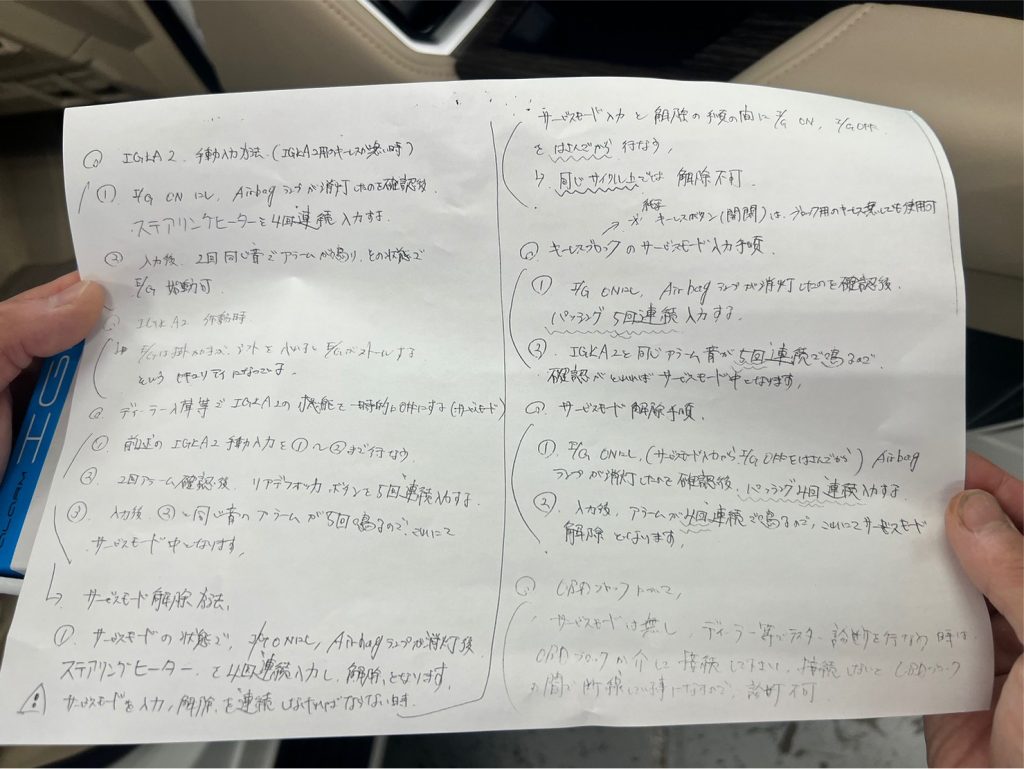 ◎ IGLA2. 手動入力方法.(IGLA2用のキーレスが無い時)
① E/G ONにし, Airbagランプが消灯したのを確認後.
ステアリングヒーターを4回連続入力する.
② 入力後. 2回同じ音でアラームが鳴り, その状態で
E/G 始動可.
◎ IGLA2 作動時.
E/Gは掛かるが, シフトを E/Gがストールする
という セキュリティになっています.
◎ ディーラー入庫等でIGLA2の機能を一時的にOFFにする(サービスモード)
① 前述のIGLA2手動入力を①〜②まで行なう.
② 2回アラーム確認後. リアデフォッガボタンを5回連続入力する.
③ 入力後. ②と同じ音のアラームが5回鳴るので, これにて
サービスモード中となります.
↳ サービスモード解除方法.
① サービスモードの状態で, E/G ONにし, Airbagランプが消灯後
ステアリングヒーターを4回連続入力し, 解除となります.
⚠ サービスモードを入力, 解除を連続しなければならない時.
サービスモード入力と解除の手順の間に E/G ON, E/G OFF
をはさんでから行なう,
↳ 同じサイクル上では 解除不可.
※ 純正キーレスボタン(開閉)は, ブロック用のキーレス無しでも使用可
◎ キーレスブロックのサービスモード入力手順.
① E/G ONにし, Airbagランプが消灯したのを確認後.
パッシング5回連続入力する.
② IGLA2と同じアラーム音が5回連続で鳴るので
確認がとれればサービスモード中となります.
◎ サービスモード解除手順.
① E/G ONにし,(サービスモード入力から, E/G OFFをはさんでから) Airbag
ランプが消灯したのを確認後. パッシング4回連続入力する.
② 入力後, アラームが4回連続で鳴るので, これにてサービスモード
解除となります.
◎ OBDブロックについて.
サービスモードは無し, ディーラー等でテスター診断を行なう時は
OBDブロックが介して接続して下さい. 接続しないとOBDブロック
の間で断線している事になるので, 診断不可